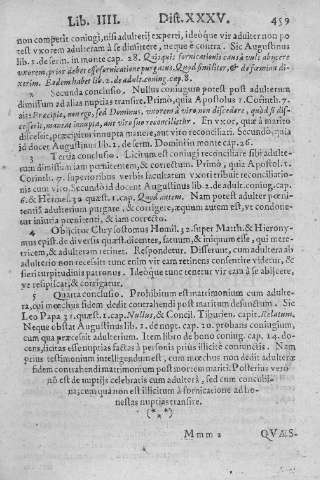 Lib. IIII. Dist. XXXV. 459
non competit coniugi, nisi adulterij experti, ideoque vir adulter non po
test vxorem adulteram à se dimittere, neque è contra. Sic Augustinus
lib. 1. de serm. in monte cap. 28. Quisquis fornicationis causa vult abijcere
vxorem, prior debet esse fornicatione purgatus. Quod similiter, & de fœmina di-
xerim. Eadem habet lib. 2. de adult. coniug. cap. 8.
2 Secunda conclusio. Nullus coniugum potest post adulterum
dimissum ad alias nuptias transire. Primò, quia Apostolus 1. Corinth. 7.
ait: Præcipio, non ego, sed Dominus, vxorem à viro non discedere, quòd si dis-
cesserit, manere innuptam, aut viro suo reconciliari. En vxor, quæ à marito
discessit, præcipitur innupta manere, aut viro reconciliari. Secundò, quia
id docet Augustinus lib. 1. de serm. Domini in monte cap. 26.
3 Tertia conclusio. Licitum est coniugi reconciliare sibi adulte-
rum dimissum iam pœnitentem, & correctum. Primò, quia Apostol. 1.
Corinth. 7. superioribus verbis facultatem vxori tribuit reconciliatio-
nis cum viro. Secundò id docent Augustinus lib. 2. de adult. coniug. cap.
6. & Hieron. 32. quæst. 1. cap. Quod autem. Nam potest adulter pœni-
tentiâ adulterium purgare, & corrigere, æquum autem est, vt condone-
tur iniuria pœnitenti, & iam correcto.
4 Obijcitur Chrysostomus Homil. 32. super Matth. & Hierony-
mus epist. de diuersis quæst. dicentes, fatuum, & iniquum esse, qui mere-
tricem, & adulteram retinet. Respondetur. Differunt, cum adultera ab
adulterio non recessit tunc enim vir eam retinens consentire videtur, &
fieri turpitudinis patronus. Ideoque tunc tenetur vir eam à se abijcere,
vt resipiscat, & corrigatur.
5 Quarta conclusio. Prohibitum est matrimonium cum adulte-
ra, cui mœchus fidem dedit contrahendi post maritum defunctum. Sic
Leo Papa 31. quæst. 1. cap. Nullus, & Concil. Tiburien. capit. Relatum.
Neque obstat Augustinus lib. 2. de nupt. cap. 10. probans coniugium,
cum qua præcessit adulterium. Item libro de bono coniug. cap. 14. do-
cens, licitas esse nuptias factas à personis prius illicitè coniunctis. Nam
prius testimonium intelligendum est, cum mœchus non dedit adulteræ
fidem contrahendi matrimonium post mortem mariti. Posterius vero
nō est de nuptijs celebratis cum adultera, sed cum concubi-
na; cum qua non est illicitum à fornicatione ad ho-
nestas nuptias transire.
(***)
Mmm 2 QVÆS-